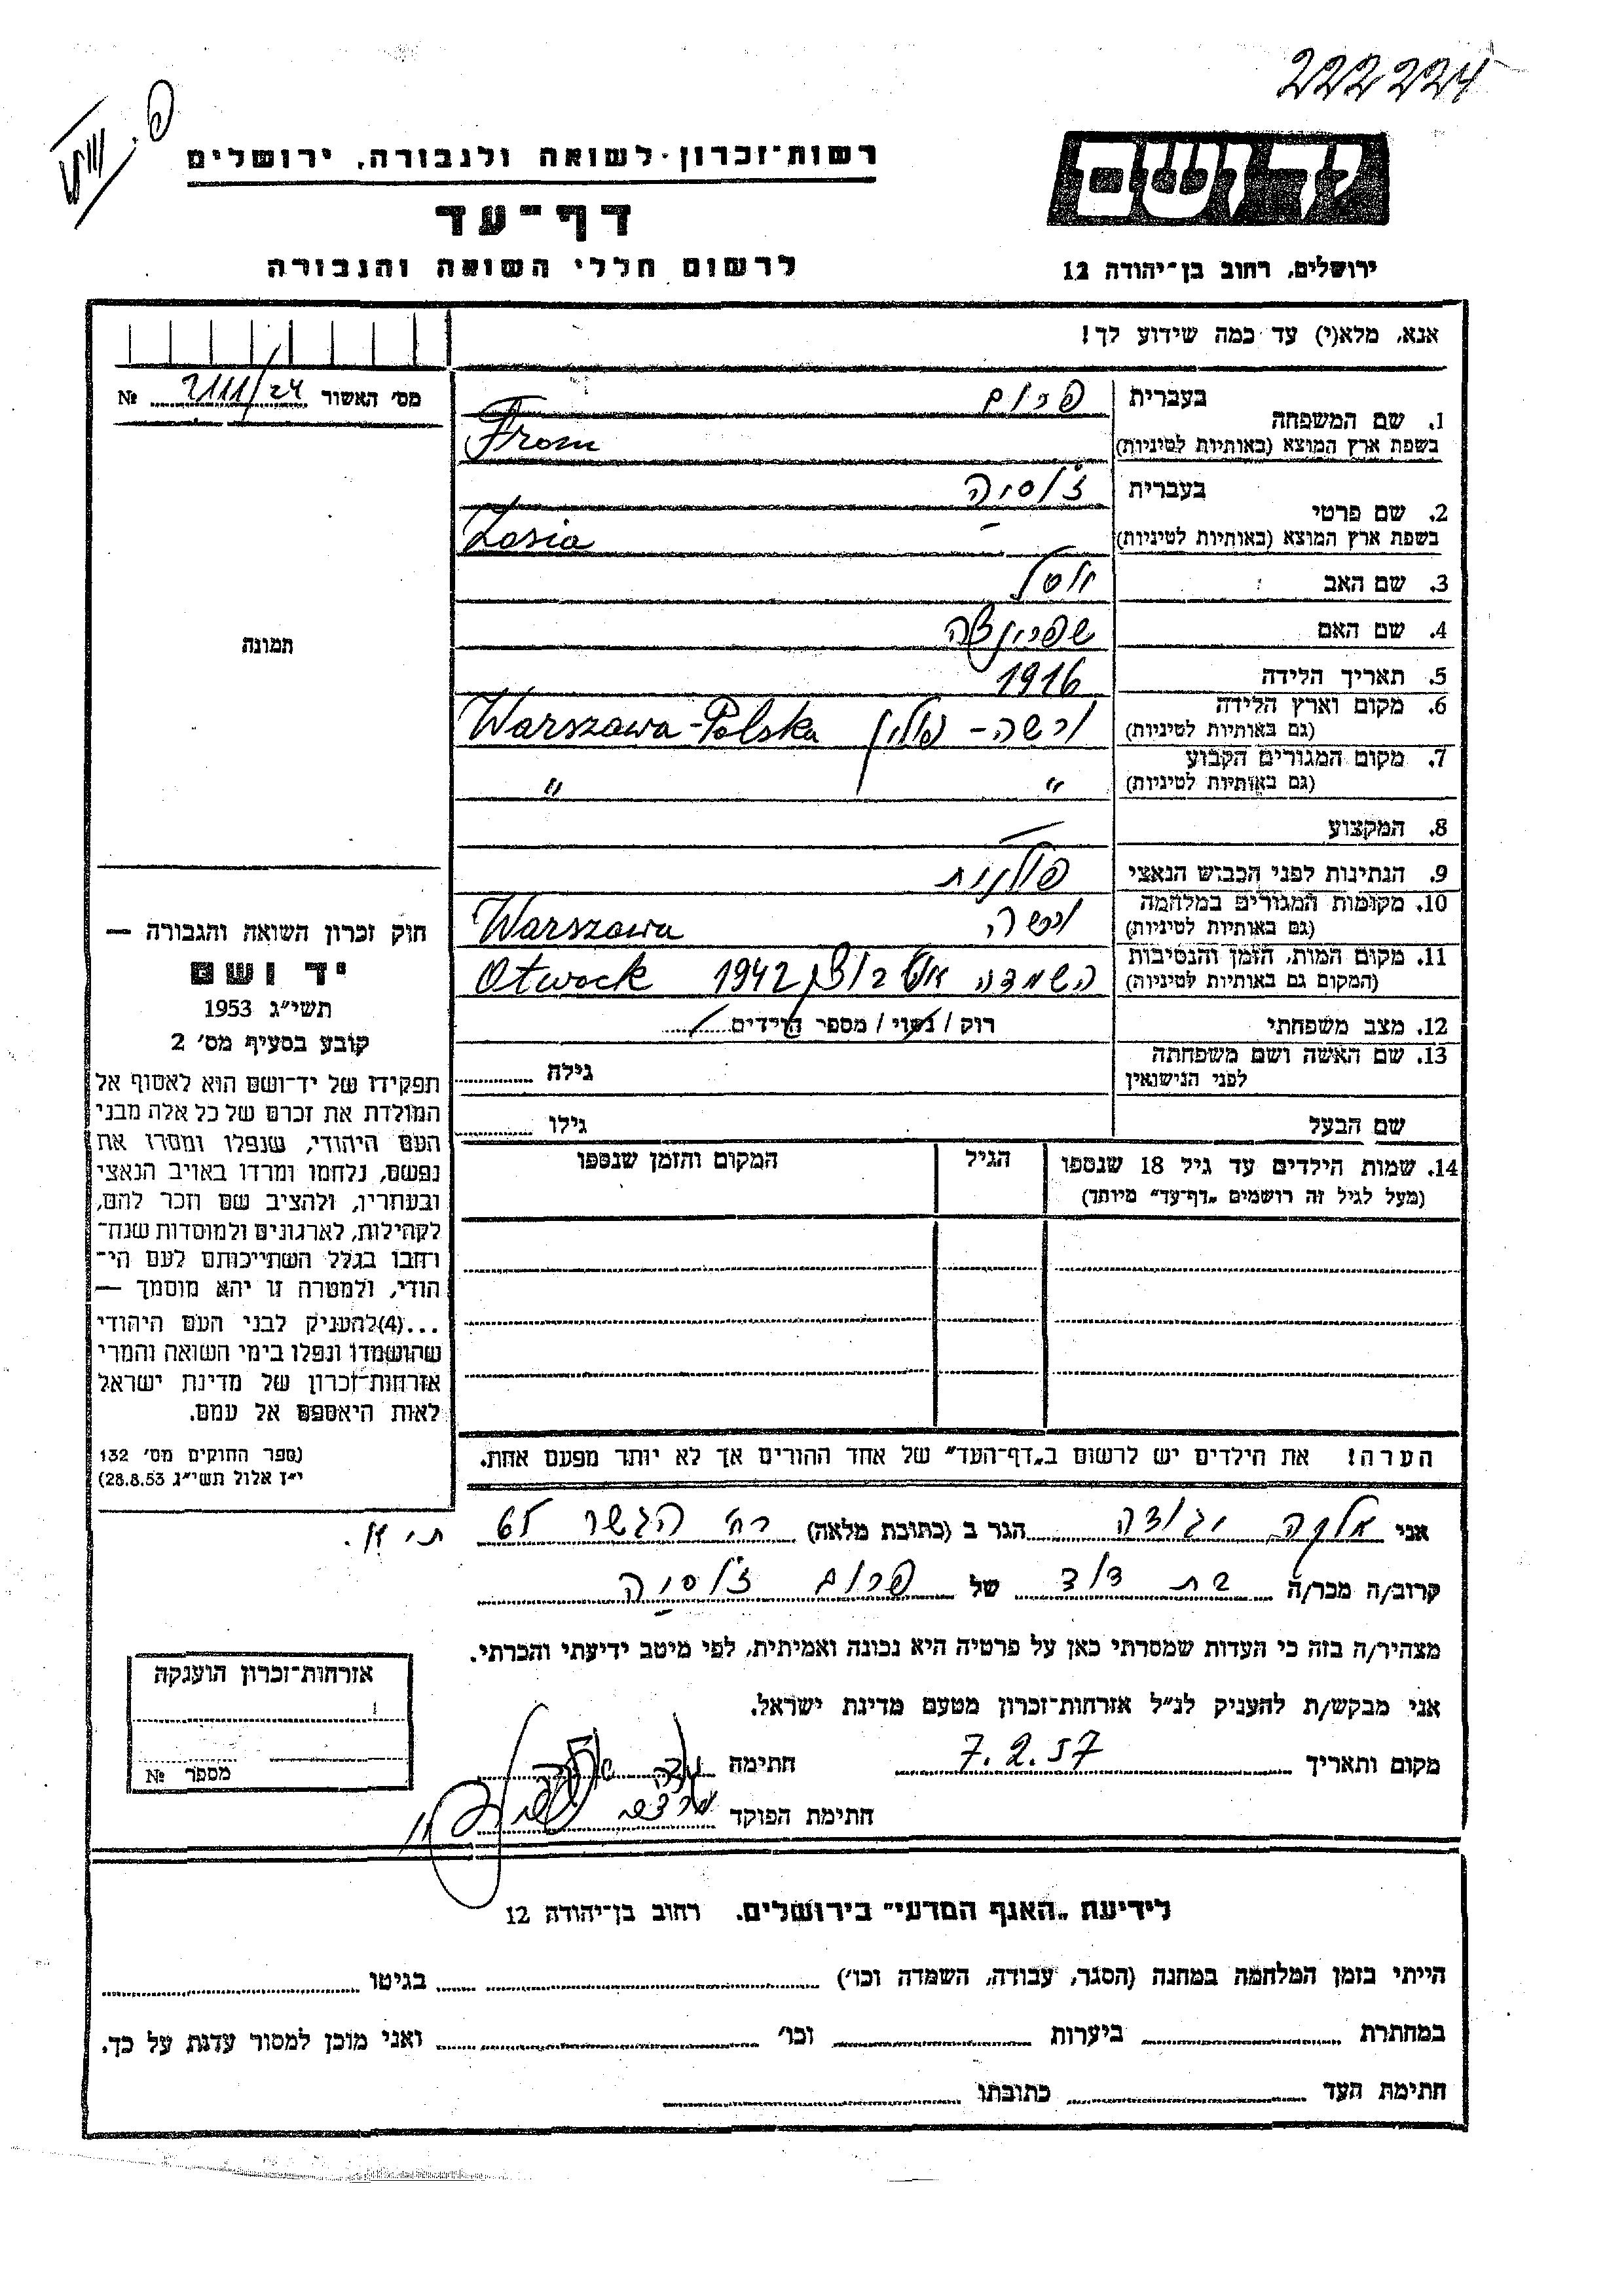 222224
רשות־זכרון לשואה ולגבורה, ירושלים
יד ושם
דף־עד
לרשום חללי השואה והגבורה
ירושלים, רחוב בן־יהודה 12
אנא, מלא(י) עד כמה שידוע לך!
מס׳ האשור 2111/24 №
1. שם המשפחה בעברית פרום
בשפת ארץ המוצא (באותיות לטיניות) From
2. שם פרטי בעברית ז'וסיה
בשפת ארץ המוצא (באותיות לטיניות) Zosia
3. שם האב יוסל
4. שם האם
5. תאריך הלידה 1916
6. מקום וארץ הלידה ורשה - פולין Warszawa-Polska
(גם באותיות לטיניות)
7. מקום המגורים הקבוע
(גם באותיות לטיניות) " "
8. המקצוע —
9. הנתינות לפני הכבוש הנאצי פולנית
10. מקומות המגורים במלחמה ורשה Warszawa
(גם באותיות לטיניות)
11. מקום המות, הזמן והנסיבות השמדה אוטבוצק 1942 Otwock
(המקום גם באותיות לטיניות)
12. מצב משפחתי רוק / נשוי / מספר הילדים
13. שם האשה ושם משפחתה
לפני הנישואין גילה
שם הבעל גילו
14. שמות הילדים עד גיל 18 שנספו הגיל המקום והזמן שנספו
(מעל לגיל זה רושמים „דף־עד״ מיוחד)
הערה! את הילדים יש לרשום ב„דף־העד״ של אחד ההורים אך לא יותר מפעם אחת.
תמונה
חוק זכרון השואה והגבורה —
יד ושם
תשי״ג 1953
קובע בסעיף מס׳ 2
תפקידו של יד־ושם הוא לאסוף אל
המולדת את זכרם של כל אלה מבני
העם היהודי, שנפלו ומסרו את
נפשם, נלחמו ומרדו באויב הנאצי
ובעוזריו, ולהציב שם וזכר להם,
לקהילות, לארגונים ולמוסדות שנח־
רחבו בגלל השתייכותם לעם הי־
הודי, ולמטרה זו יהא מוסמך —
...(4)להעניק לבני העם היהודי
שהושמדו ונפלו בימי השואה והמרי
אזרחות־זכרון של מדינת ישראל
לאות היאספם אל עמם.
(ספר החוקים מס׳ 132
י״ז אלול תשי״ג 28.8.53)
אני הגר ב (כתובת מלאה) רח' הגשר 65 ת"א.
קרוב/ה מכר/ה בת דוד של פרום ז'וסיה
מצהיר/ה בזה כי העדות שמסרתי כאן על פרטיה היא נכונה ואמיתית, לפי מיטב ידיעתי והכרתי.
אני מבקש/ת להעניק לנ״ל אזרחות־זכרון מטעם מדינת ישראל.
מקום ותאריך 7.2.57 חתימה
חתימת הפוקד
אזרחות־זכרון הוענקה
מספר №
לידיעת „האגף המדעי״ בירושלים. רחוב בן־יהודה 12
הייתי בזמן המלחמה במחנה (הסגר, עבודה, השמדה וכו׳) בגיטו
במחתרת ביערות וכו׳ ואני מוכן למסור עדות על כך.
חתימת העד כתובתו